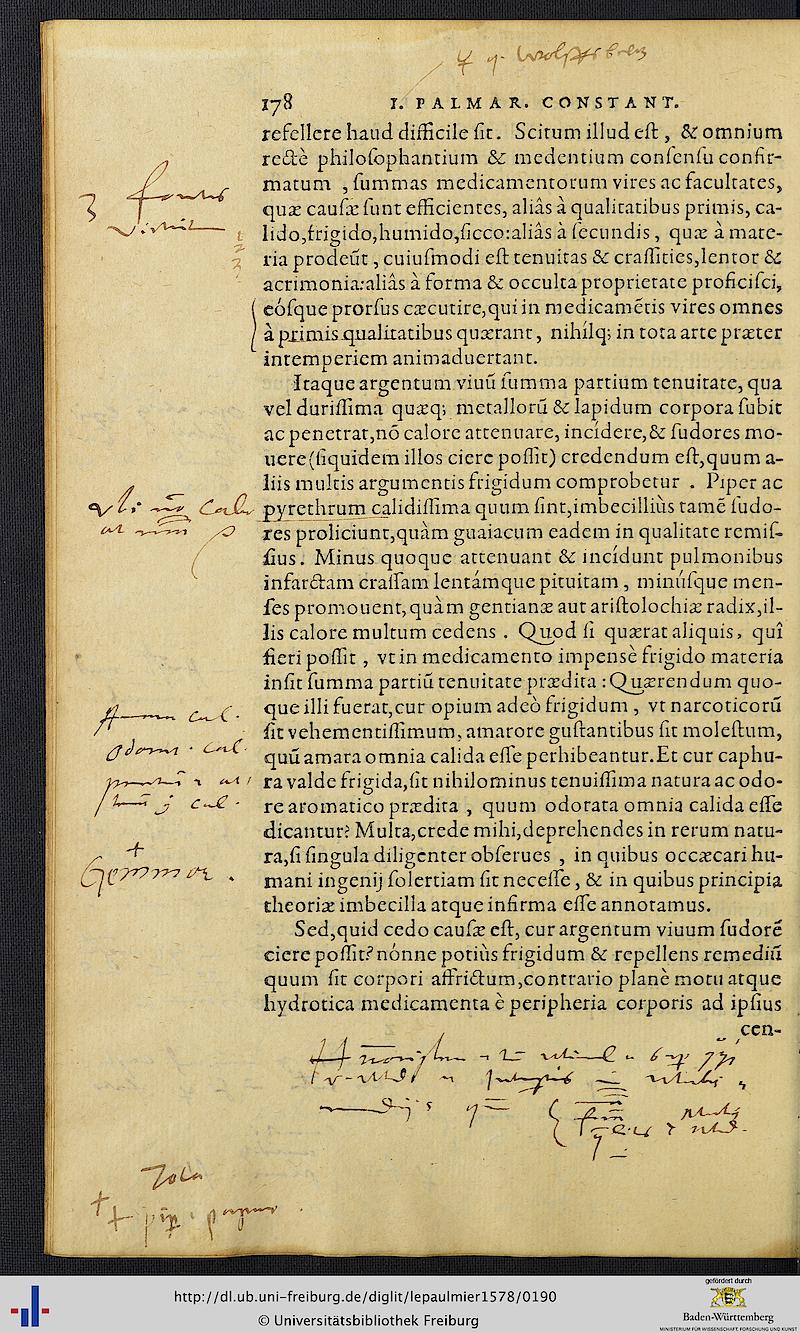 178 I. PALMAR. CONSTANT.
refellere haud difficile sit. Scitum illud eſt, & omnium
rectè philoſophantium & medentium conſenſu confir-
matum , ſummas medicamentorum vires ac facultates,
quæ cauſæ ſunt efficientes, aliâs à qualitatibus primis, ca-
lido,frigido,humido,ſicco:aliâs à ſecundis, quæ à mate-
ria prodeũt, cuiuſmodi eſt tenuitas & craſſities,lentor &
acrimonia:aliâs à forma & occulta proprietate proficiſci,
eóſque prorſus cæcutire,qui in medicamẽtis vires omnes
à primis qualitatibus quærant, nihílq; in tota arte præter
intemperiem animaduertant.
Itaque argentum viuũ ſumma partium tenuitate, qua
vel duriſſima quæq; metallorũ & lapidum corpora ſubit
ac penetrat,nõ calore attenuare, incídere,& ſudores mo-
uere(ſiquidem illos ciere poſſit) credendum eſt,quum a-
liis multis argumentis frigidum comprobetur . Piper ac
pyrethrum calidiſſima quum ſint,imbecilliùs tamẽ ſudo-
res proliciunt,quàm guaiacum eadem in qualitate remiſ-
ſius. Minus quoque attenuant & incídunt pulmonibus
infarctam craſſam lentámque pituitam, minúſque men-
ſes promouent,quàm gentianæ aut ariſtolochiæ radix,il-
lis calore multum cedens . Quod ſi quærat aliquis, quî
fieri poſſit , vt in medicamento impensè frigido materia
inſit ſumma partiũ tenuitate prædita : Quærendum quo-
que illi fuerat,cur opium adeò frigidum, vt narcoticorũ
ſit vehementiſſimum, amarore guſtantibus ſit moleſtum,
quũ amara omnia calida eſſe perhibeantur.Et cur caphu-
ra valde frigida,ſit nihilominus tenuiſſima natura ac odo-
re aromatico prædita , quum odorata omnia calida eſſe
dicantur? Multa,crede mihi,deprehendes in rerum natu-
ra,ſi ſingula diligenter obſerues , in quibus occæcari hu-
mani ingenij ſolertiam ſit neceſſe, & in quibus principia
theoriæ imbecilla atque infirma eſſe annotamus.
Sed,quid cedo cauſæ eſt, cur argentum viuum ſudorẽ
ciere poſſit? nónne potiùs frigidum & repellens remediũ
quum ſit corpori affrictum,contrario planè motu atque
hydrotica medicamenta è peripheria corporis ad ipſius
cen-
http://dl.ub.uni-freiburg.de/diglit/lepaulmier1578/0190
© Universitätsbibliothek Freiburg
gefördert durch
Baden-Württemberg
MINISTERIUM FÜR WISSENSCHAFT, FORSCHUNG UND KUNST